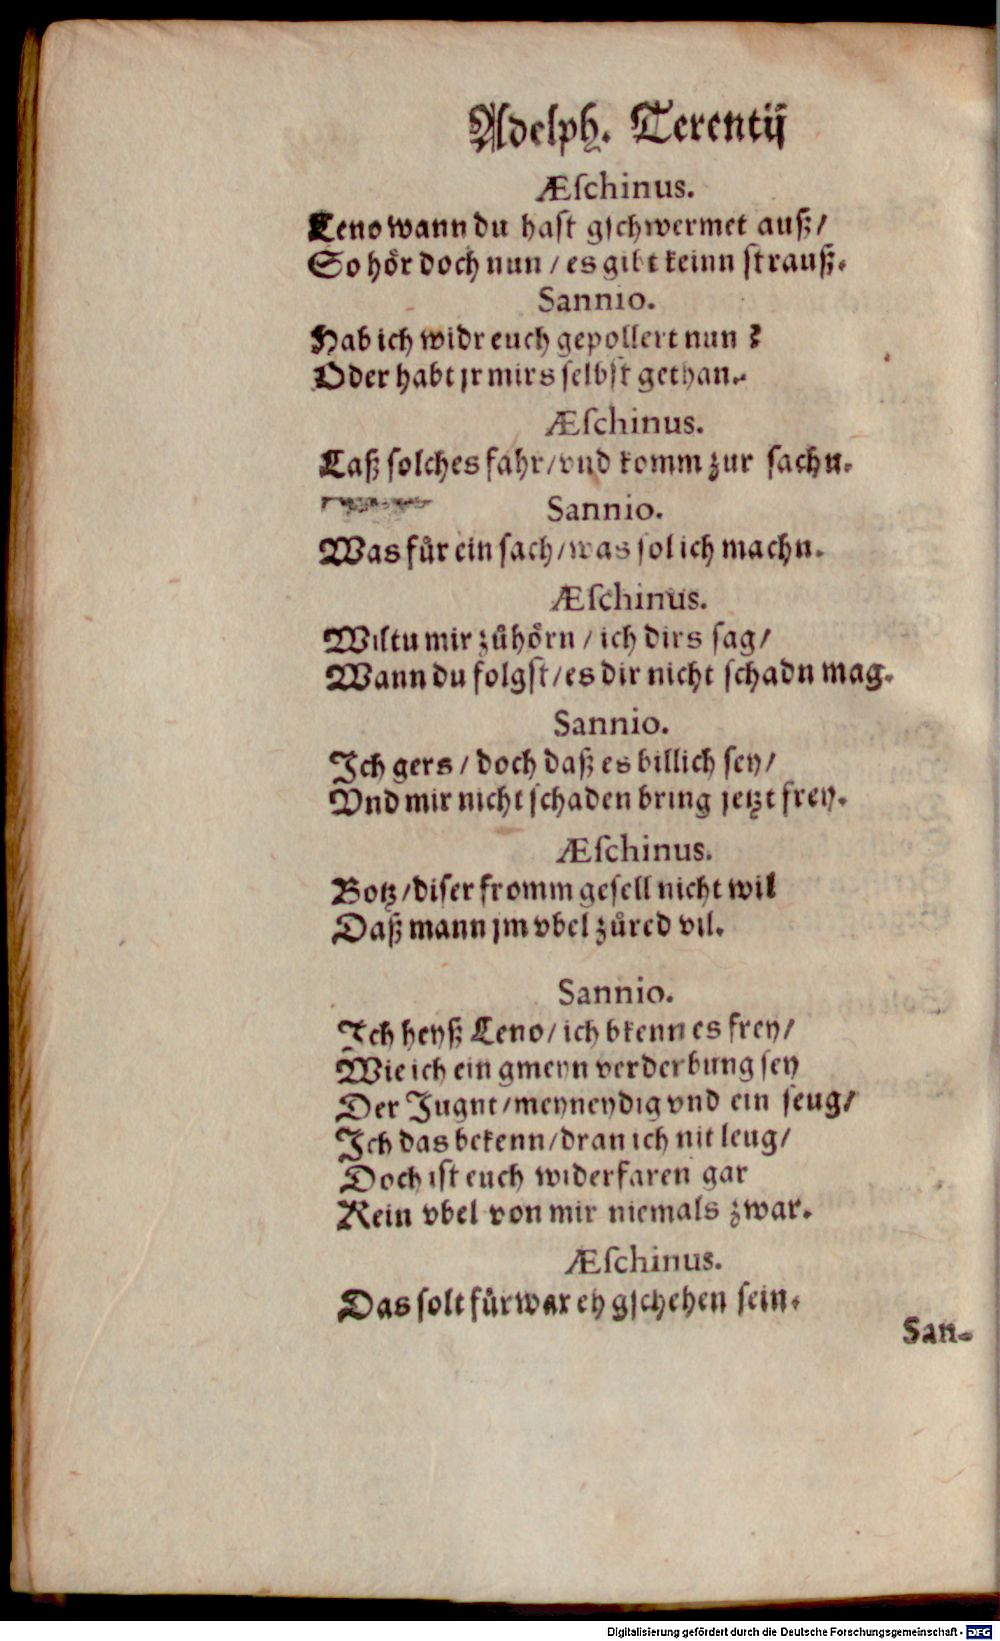 Adelph. Terentij
Æſchinus.
Leno wann du haſt gſchwermet auß/
So hör doch nun / es gibt keinn ſtrauß.
Sannio.
Hab ich widr euch gepollert nun ?
Oder habt jr mirs ſelbſt gethan.
Æſchinus.
Laß ſolches fahr/vnd komm zur ſachn.
Sannio.
Was für ein ſach/was ſol ich machn.
Æſchinus.
Wiltu mir zůhörn / ich dirs ſag/
Wann du folgſt/es dir nicht ſchadn mag.
Sannio.
Ich gers / doch daß es billich ſey/
Vnd mir nicht ſchaden bring jetzt frey.
Æſchinus.
Botz/diſer fromm geſell nicht wil
Daß mann jm vbel zůred vil.
Sannio.
Ich heyß Leno/ ich bkenn es frey/
Wie ich ein gmeyn verderbung ſey
Der Jugnt/meyneydig vnd ein ſeug/
Ich das bekenn/dran ich nit leug/
Doch iſt euch widerfaren gar
Kein vbel von mir niemals zwar.
Æſchinus.
Das ſolt fürwar ey gſchehen ſein.
San-
Digitalisierung gefördert durch die Deutsche Forschungsgemeinschaft - DFG